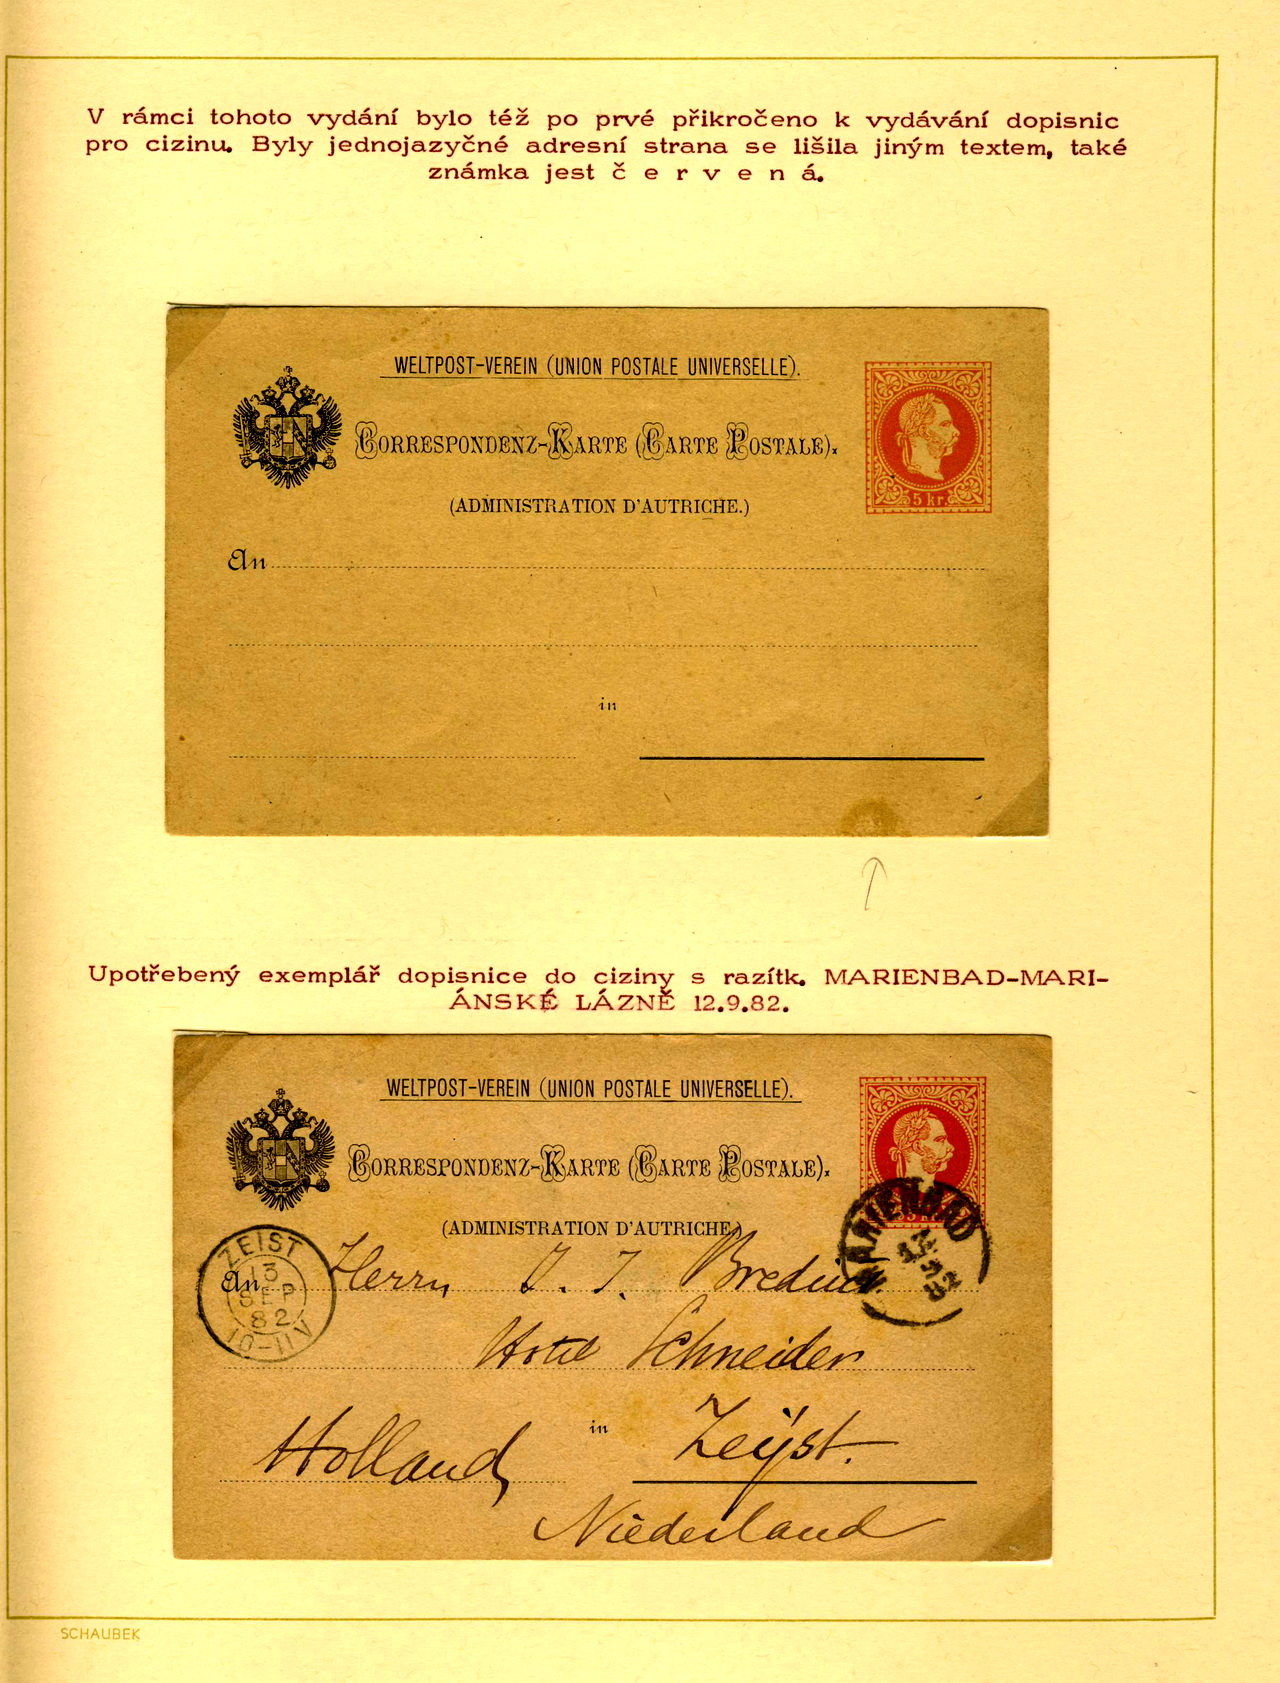 V rámci tohoto vydání bylo též po prvé přikročeno k vydávání dopisnic
pro cizinu. Byly jednojazyčné adresní strana se lišila jiným textem, také
známka jest č e r v e n á.
WELTPOST-VEREIN (UNION POSTALE UNIVERSELLE).
CORRESPONDENZ-KARTE (CARTE POSTALE).
(ADMINISTRATION D'AUTRICHE.)
5 kr.
An
in
Upotřebený exemplář dopisnice do ciziny s razítk. MARIENBAD-MARI-
ÁNSKÉ LÁZNĚ 12.9.82.
WELTPOST-VEREIN (UNION POSTALE UNIVERSELLE).
CORRESPONDENZ-KARTE (CARTE POSTALE).
(ADMINISTRATION D'AUTRICHE.)
MARIENBAD
12
9
82
ZEIST
13
SEP
82
10-11V
An Herrn J. J.
Hotel Schneider
Holland, in Zeÿst.
Niederland
SCHAUBEK